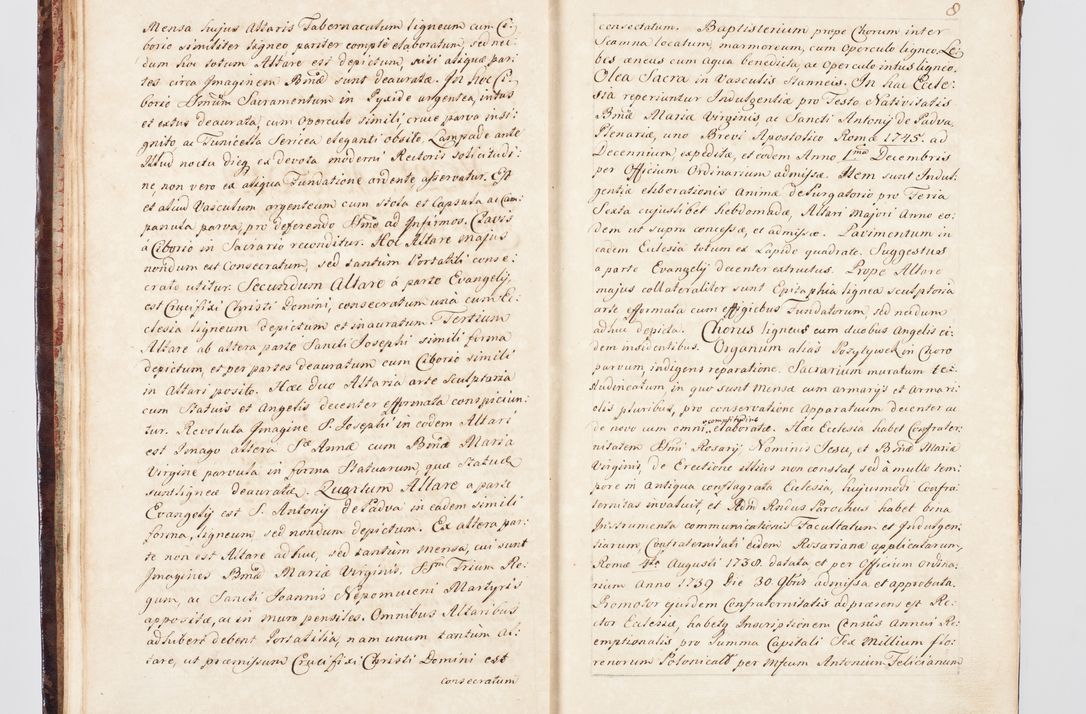 Mensa hujus Altaris Tabernaculum ligneum cum Ci-
borio similiter ligneo pariter compte elaboratum, sed nec
dum hoc totum Altare est depictum, nisi aliquæ par-
tes circa Imaginem Bmæ sunt deauratæ. In hoc Ci-
borio Smum Sacramentum in Pyxide argentea, intus
et extus deaurata, cum operculo simili, cruce parva insi-
gnito, ac Tunicella Sericea eleganti obsito, Lampade ante
Illud noctu dieq ex devota moderni Rectoris solicitudi-
ne, non vero ex aliqua Fundatione ardente, asservatur. Est
et aliud Vasculum argenteum cum stola et Capsula ac Cam-
panula parva, pro deferendo Smo ad Infirmos. Clavis
á Ciborio in Sacrario reconditur. Hoc Altare majus
nondum est Consecratum, sed tantùm Portatili conse-
crato utitur. Secundum Altare á parte Evangelij,
est Crucifixi Christi Domini, consecratum unà cum Ec-
clesia ligneum depictum et inauratum. Tertium
Altare ab altera parte Sancti Josephi simili forma
depictum, et per partes deauratum cum Ciborio simili
in Altari posito. Hæc duo Altaria arte Sculptoria
cum Statuis et Angelis decenter efformata conspiciun-
tur. Revoluta Imagine S. Josephi in eodem Altari
est Imago altera Sæ Annæ cum Bmâ Maria
Virgine parvula in forma Statuarum, quæ Statuæ
sunt ligneæ deauratæ. Quartum Altare a parte
Evangelij est S. Antonij de Padva in eadem simili
forma, ligneum sed nondum depictum. Ex altera par-
te non est Altare ad huc, sed tantùm mensa, cui sunt
Imagines Bmæ Mariæ Virginis, SSm Trium Re-
gum, ac Sancti Joannis Nepomuceni Martyris
appositæ, ac in muro pensiles. Omnibus Altaribus
adhiberi debent Portatilia, nam unum tantùm Al-
tare, ut præmissum Crucifixi Christi Domini est
consecratum
8
consectatum. Baptisterium prope Chorum inter
Scamna locatum, marmoreum, cum Operculo ligneo, Le-
bes æneus cum aqua benedicta, ac Operculo intus ligneo.
Olea Sacra in Vasculis stanneis. In hac Eccle-
sia reperiuntur Indulgentiæ pro Festo Nativitatis
Bmæ Mariæ Virginis, ac Sancti Antonij de Padva
Plenariæ, uno Brevi Apostolico Romæ 1745. ad
Decennium expeditæ, et eodem Anno 1ma Decembris
per Officium Ordinarium admissæ. Item sunt Indul-
gentiæ eliberationis animæ de Purgatorio pro Feria
Sexta cujuslibet hebdomadæ, Altari Majori Anno eo-
dem ut supra concessæ, et admissæ. Pavimentum in
eadem Ecclesia totum ex Lapide quadrato. Suggestus
a parte Evangelij decenter extructus. Prope Altare
majus collateraliter sunt Epitaphia lignea sculptoria
arte efformata cum effigiebus Fundatorum, sed necdum
adhuc depicta. Chorus ligneus cum duobus Angelis ei-
dem insidentibus. Organum alias Pozytywek in Choro
parvum, indigens reparatione. Sacrarium muratum tes-
tudineatum, in quo sunt Mensæ cum armarijs et Armari-
olis pluribus, pro conservatione Apparatuum decenter ac
de novo cum omni elaboratæ. Hæc Ecclesia habet Confrater-
nitatem SSmi Rosarij Nominis Jesu, et Bmæ Mariæ
Virginis, de Erectione illius non constat sed à multo tem-
pore in Antiqua conflagrata Ecclesia, hujusmodi Confra-
ternitas invaluit, et Adm Rndus Parochus habet bina
Instrumenta communicationis Facultatum et Indulgen-
tiarum, Confraternitati eidem Rosarianæ applicatarum,
Romæ 4ta Augusti 1738. datata et per Officium Ordina-
rium Anno 1739 Die 30. 9bris admissa et approbata.
Promotor ejusdem Confraternitatis ad præsens est Re-
ctor Ecclesiæ, habetq Inscriptionem Census Annui Re-
emptionalis pro Summa Capitali Sex Millium flo-
renorum Polonicall per Mfcum Antonium Felicianum